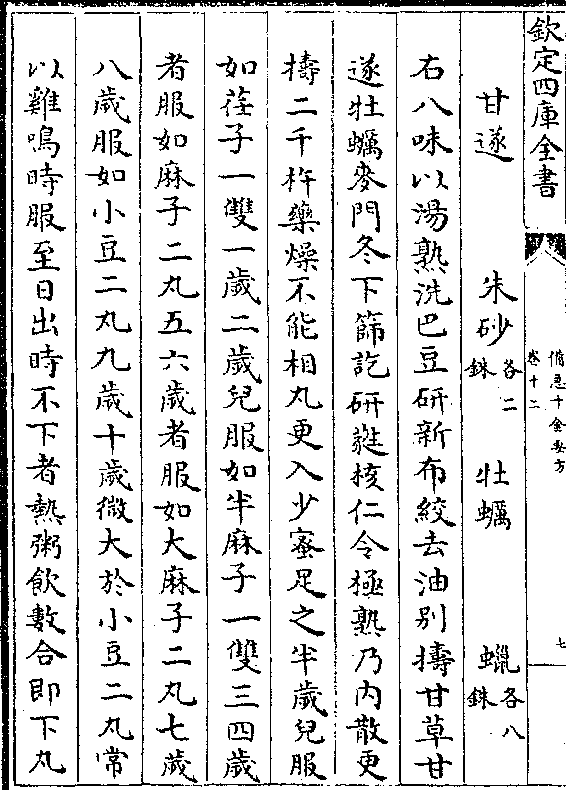 欽定四庫全書
備急千金要方
卷十二
七
甘遂　朱砂各二銖　牡蠣　蠟各八銖
右八味以湯熟洗巴豆研新布絞去油别擣甘草甘
遂牡蠣麥門冬下篩訖研蕤核仁令極熟乃内散更
擣二千杵藥燥不能相丸更入少蜜足之半歲兒服
如荏子一雙一歲二歲兒服如半麻子一雙三四歲
者服如麻子二丸五六歲者服如大麻子二丸七歲
八歲服如小豆二丸九歲十歲微大於小豆二丸常
以雞鳴時服至日出時不下者熱粥飲數合即下丸